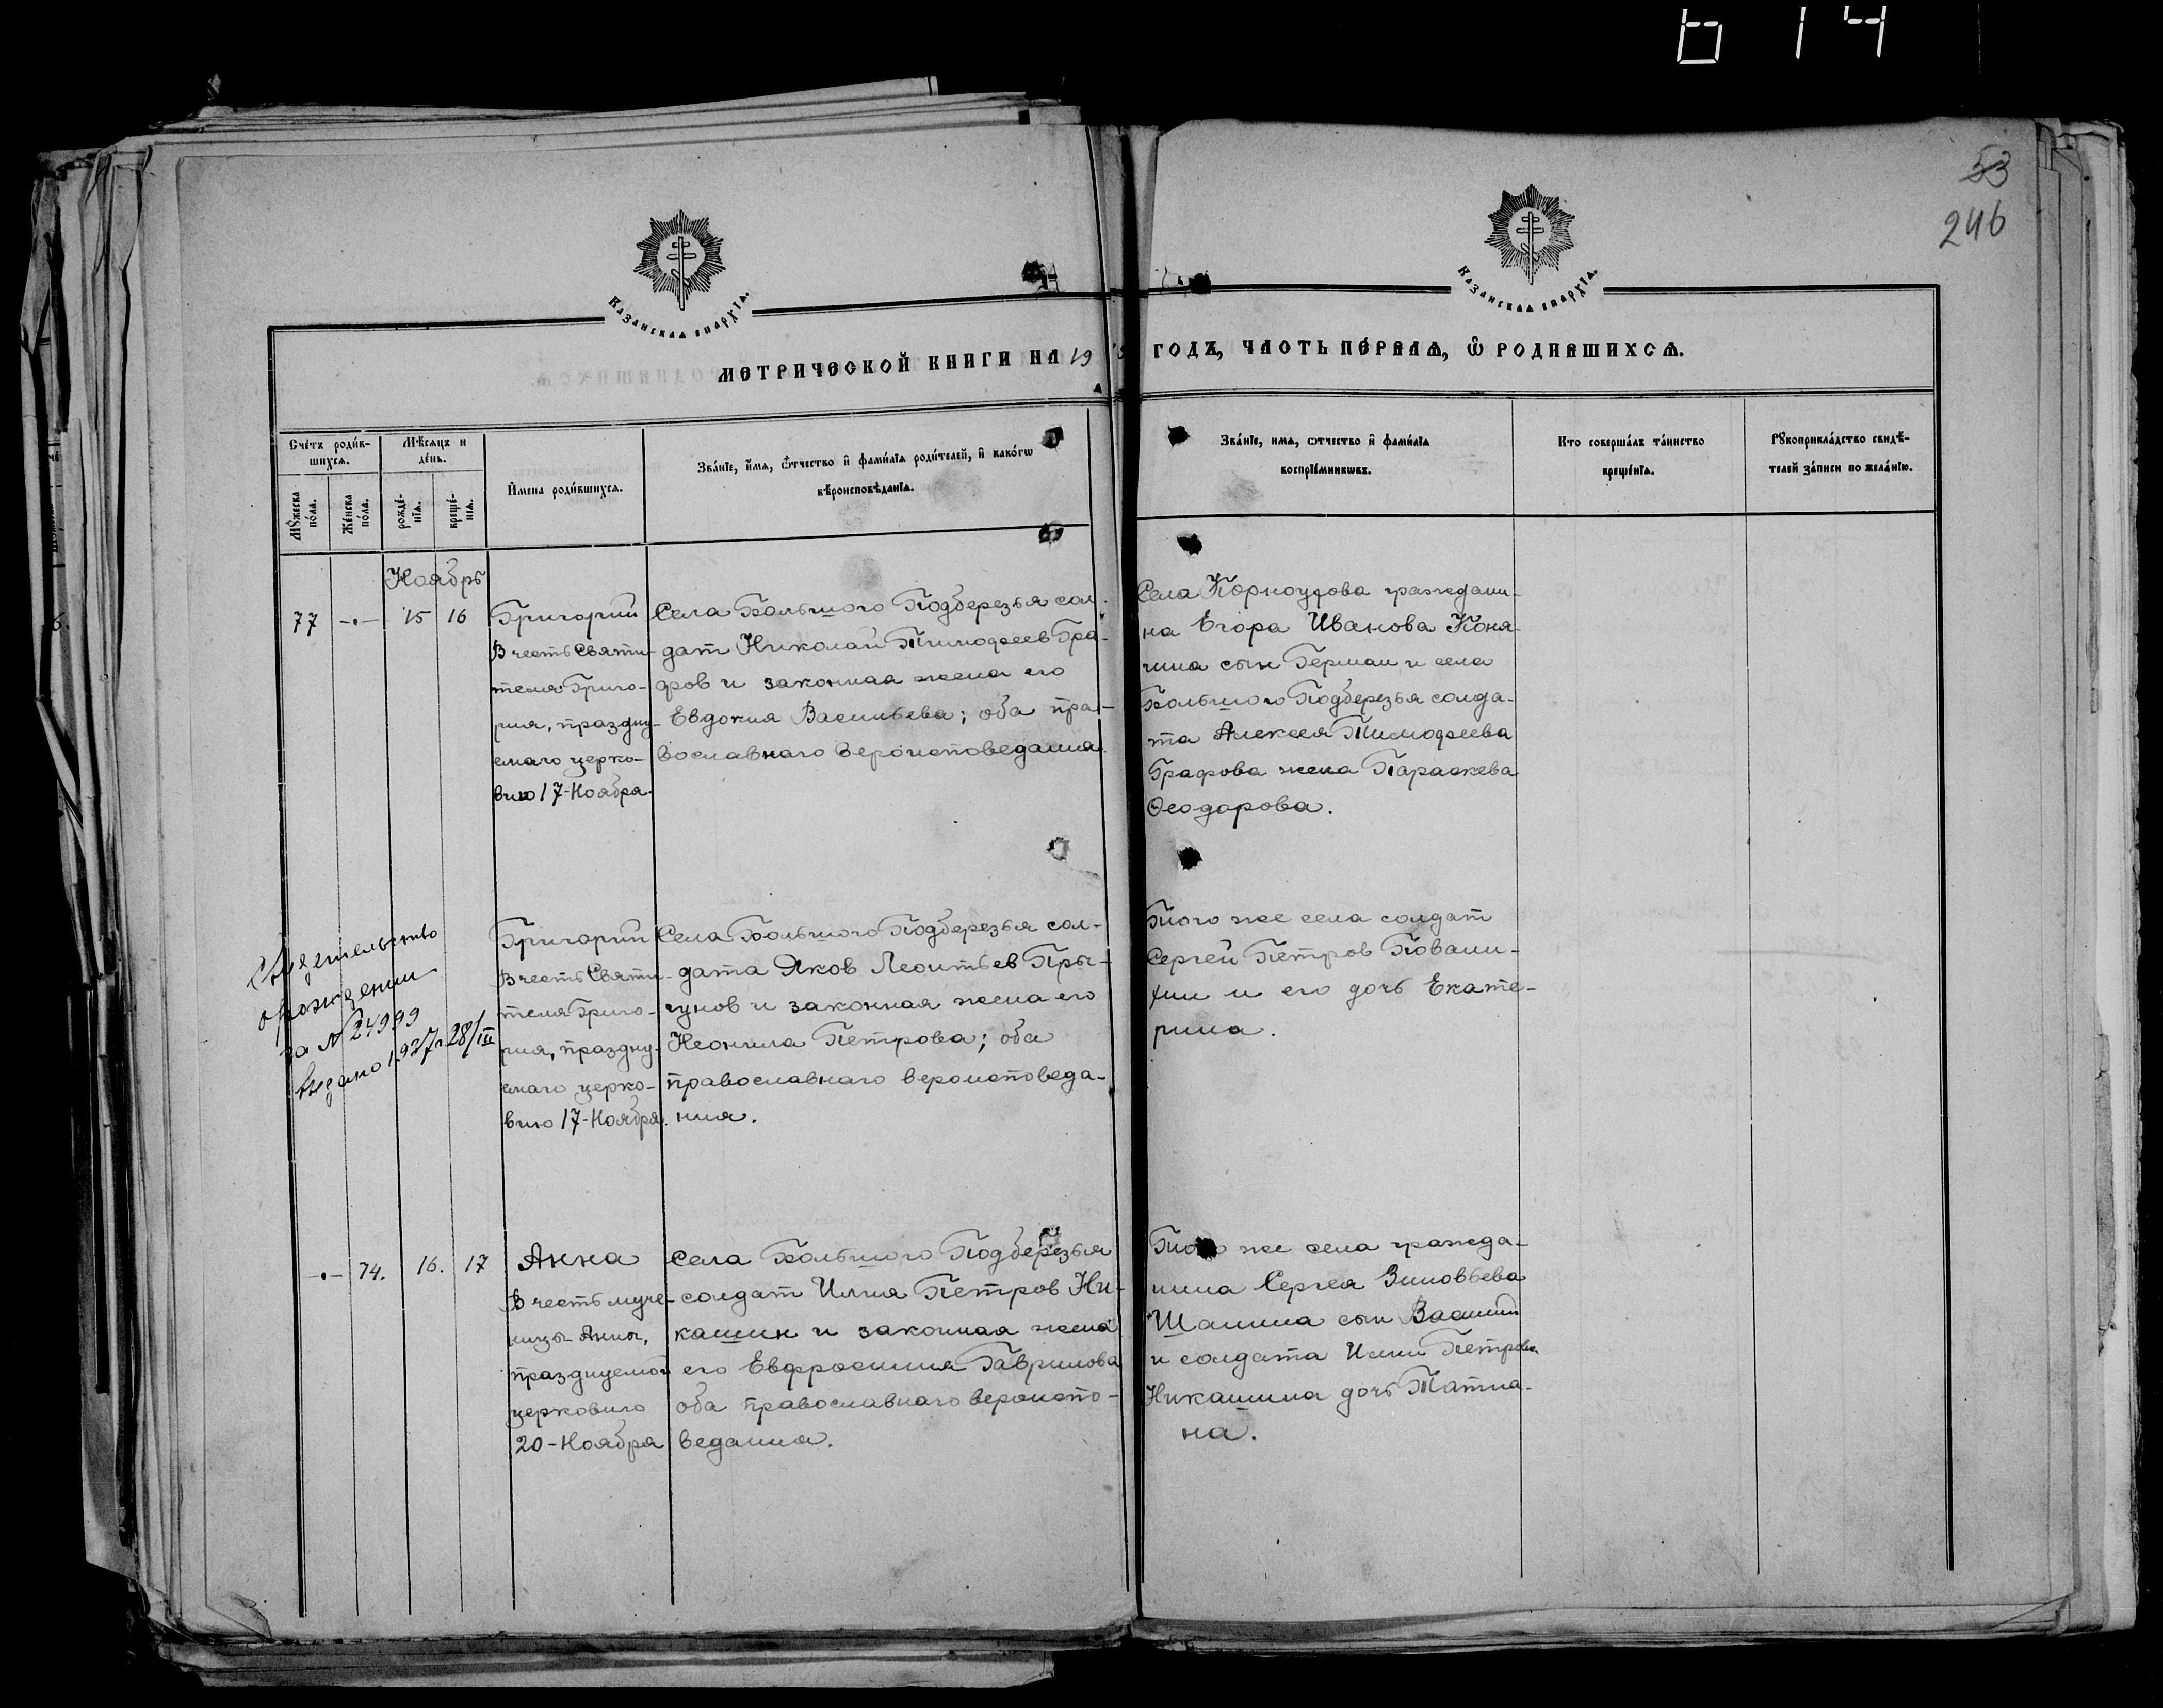 6 14
53
246
Казанская епархїа.
Казанская епархїа.
МЕТРИЧЕСКОЙ КНИГИ НА 19
ГОДЪ, ЧАСТЬ ПЕ́РВАЯ, Ѿ РОДИВШИХСЯ.
Сче́тъ роди́в-
шихся.
Мѣ́сяцъ и
де́нь.
И҆мена роди́вшихся.
Зва́нїе, и҆́мя, ѻ҆́тчество и҆ фами́лїя роди́телей, и҆ како́гѡ
вѣроисповѣ́данїя.
Мꙋ́жеска
по́ла.
Же́нска
по́ла.
рожде́-
нїя.
креще́-
нїя.
Зва́нїе, имя, ѻтчество и҆ фами́лїя
воспрїе́мникѡвъ.
Кто соверша́лъ та́инство
креще́нїя.
Рꙋкоприкла́дство свидѣ́-
телей за́писи по жела́нїю.
Ноябрь
77 -•- 15 16
Григорий
В честь Святи-
теля Григо-
рия, праздну-
емаго церко-
вию 17-Ноября.
Села Большого Подберезья сол-
дат Николай Тимофеев Гра-
фов и законная жена его
Евдокия Васильева; оба пра-
вославнаго вероисповедания.
Села Корноухова граждани-
на Егора Иванова Коня-
хина сын Герман и села
Большого Подберезья солда-
та Алексея Тимофеева
Графова жена Параскева
Ѳеодорова.
Свидетельство
о рождении
за № 24999
выдано 1927 г. 28/III
Григорий
В честь Святи-
теля Григо-
рия, праздну-
емаго церко-
вию 17-Ноября.
Села Большого Подберезья сол-
дата Яков Леонтьев Пры-
гунов и законная жена его
Неонила Петрова; оба
православнаго вероисповеда-
ния.
Того же села солдат
Сергей Петров
и его дочь Екате-
рина.
-•- 74. 16. 17
Анна
В честь муче-
ницы Анны,
празднуемой
церковию
20-Ноября
Села Большого Подберезья
солдат Илия Петров Ни-
кашин и законная жена
его Евфросиния Гаврилова
оба православнаго вероиспо-
ведания.
Того же села гражда-
нина Сергея Зиновьева
Шанина сын Василий
и солдата Илии Петрова
Никашина дочь Татиа-
на.